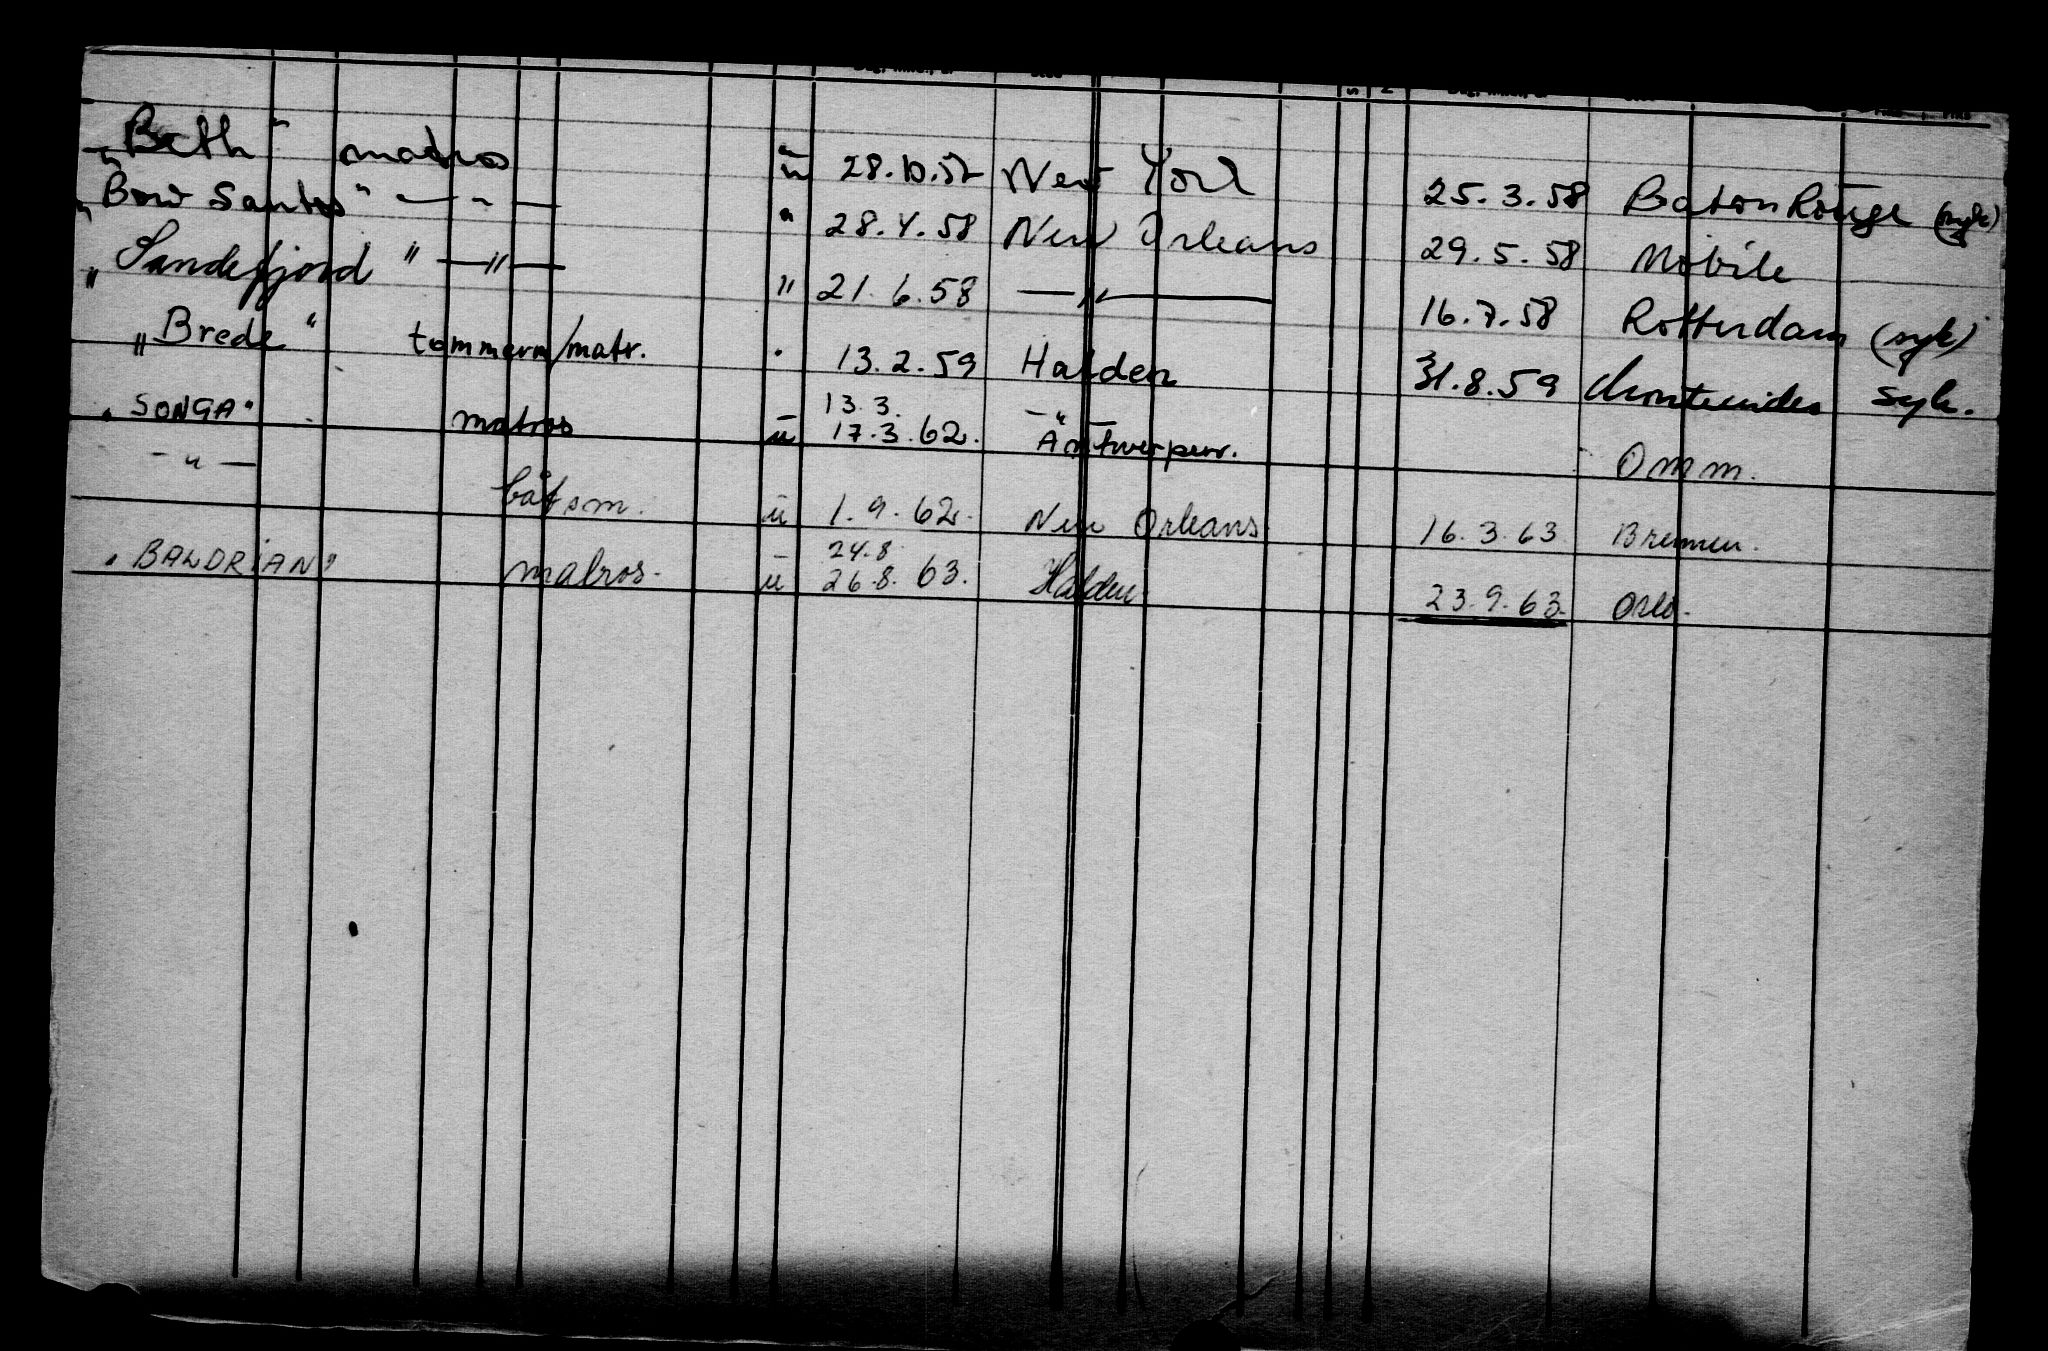 "Beth" matros ū 28.10.57 New York 25.3.58 Baton Rouge (syk)
"Bow Santos" — " — " 28.4.58 New Orleans 29.5.58 Mobile
"Sandefjord" — " — " 21.6.58 — " — 16.7.58 Rotterdam (syk)
"Brede" tømmerm/matr. " 13.2.59 Halden 31.8.59 Montevideo syk.
"SONGA" matros ū 13.3. 17.3.62. — " — Antwerpen. Omm.
— " — båtsm. ū 1.9.62. New Orleans 16.3.63 Bremen.
"BALDRIAN" matros. ū 24.8. 26.8.63. Halden 23.9.63. Oslo.